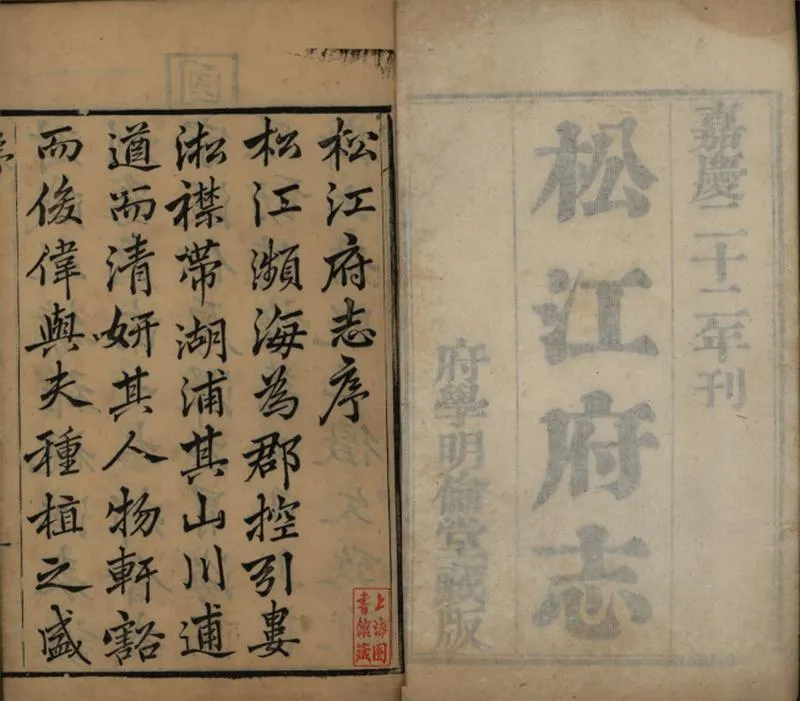 嘉慶二十二年刊
松江府志
府學明倫堂藏版
松江府志序
松江瀕海為郡控引婁
淞襟帶湖浦其山川逋
道而清妍其人物軒豁
而俊偉與夫種植之盛
上海图
書館藏